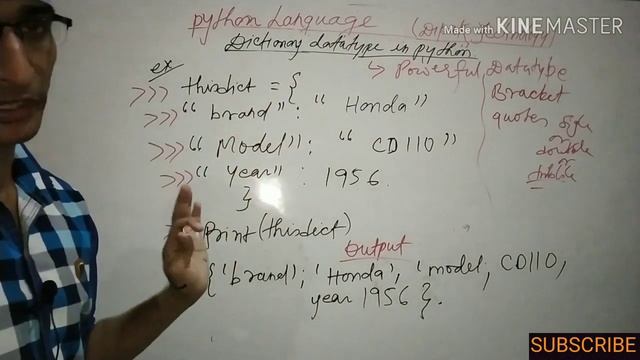 python Language
Made with KINEMASTER
Dictionary datatype in python
ex
↳ Powerful Datatype
>>> thisdict = {
Bracket
>>> "brand": "Honda"
quotes single
or
double
or
>>> "Model": "CD110"
>>> "Year" : 1956.
}
print(thisdict)
Output
{'brand'; 'Honda', 'model; CD110,
year 1956}.
SUBSCRIBE